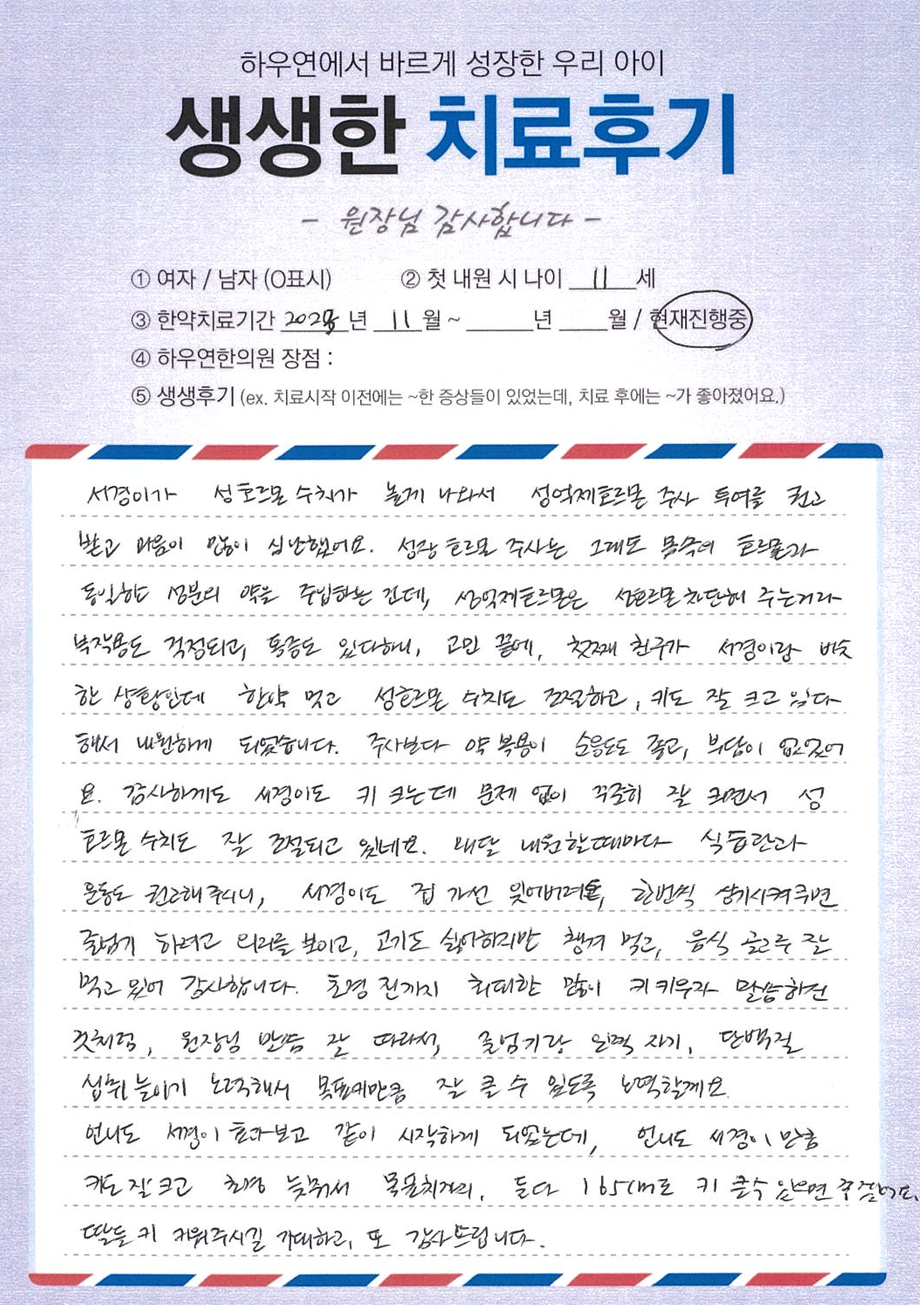 하우연에서 바르게 성장한 우리 아이
생생한 치료후기
- 원장님 감사합니다 -
① 여자 / 남자 (O표시) ② 첫 내원 시 나이 11 세
③ 한약치료기간 년 11 월 ~ 년 월 / 현재진행중
④ 하우연한의원 장점 :
⑤ 생생후기 (ex. 치료시작 이전에는 ~한 증상들이 있었는데, 치료 후에는 ~가 좋아졌어요.)
서경이가 성호르몬 수치가 높게 나와서 성억제호르몬 주사 투여를 권고
받고 마음이 많이 심난했어요. 성장호르몬 주사는 그래도 몸속에 호르몬과
동일한 성분의 약을 주입하는 건데, 성억제호르몬은 성호르몬 차단해 주는거라
부작용도 걱정되고, 통증도 있다하니, 고민 끝에, 첫째 친구가 서경이랑 비슷
한 상황인데 한약 먹고 성호르몬 수치도 조절하고, 키도 잘 크고 있다
해서 내원하게 되었습니다. 주사보다 약 복용이 순응도도 좋고, 부담이 없었어
요. 감사하게도 서경이도 키 크는데 문제 없이 꾸준히 잘 크면서 성
호르몬 수치도 잘 조절되고 있네요. 매달 내원할때마다 식습관과
운동도 권고해주시니, 서경이도 집 가선 잊어버려도, 한번씩 상기시켜주면
줄넘기 하려고 의지를 보이고, 고기도 싫어하지만 챙겨 먹고, 음식 골고루 잘
먹고 있어 감사합니다. 초경 전까지 최대한 많이 키 키우자 말씀하신
것처럼, 원장님 말씀 잘 따라서, 줄넘기랑 일찍 자기, 단백질
섭취 늘이기 노력해서 목표체만큼 잘 클 수 있도록 노력할게요.
언니도 서경이 효과보고 같이 시작하게 되었는데, 언니도 서경이 만큼
키도 잘 크고 초경 늦춰서 목표치까지, 둘다 165cm로 키 클수 있으면 좋겠어요.
딸들 키 키워주시길 기대하고, 또 감사드립니다.